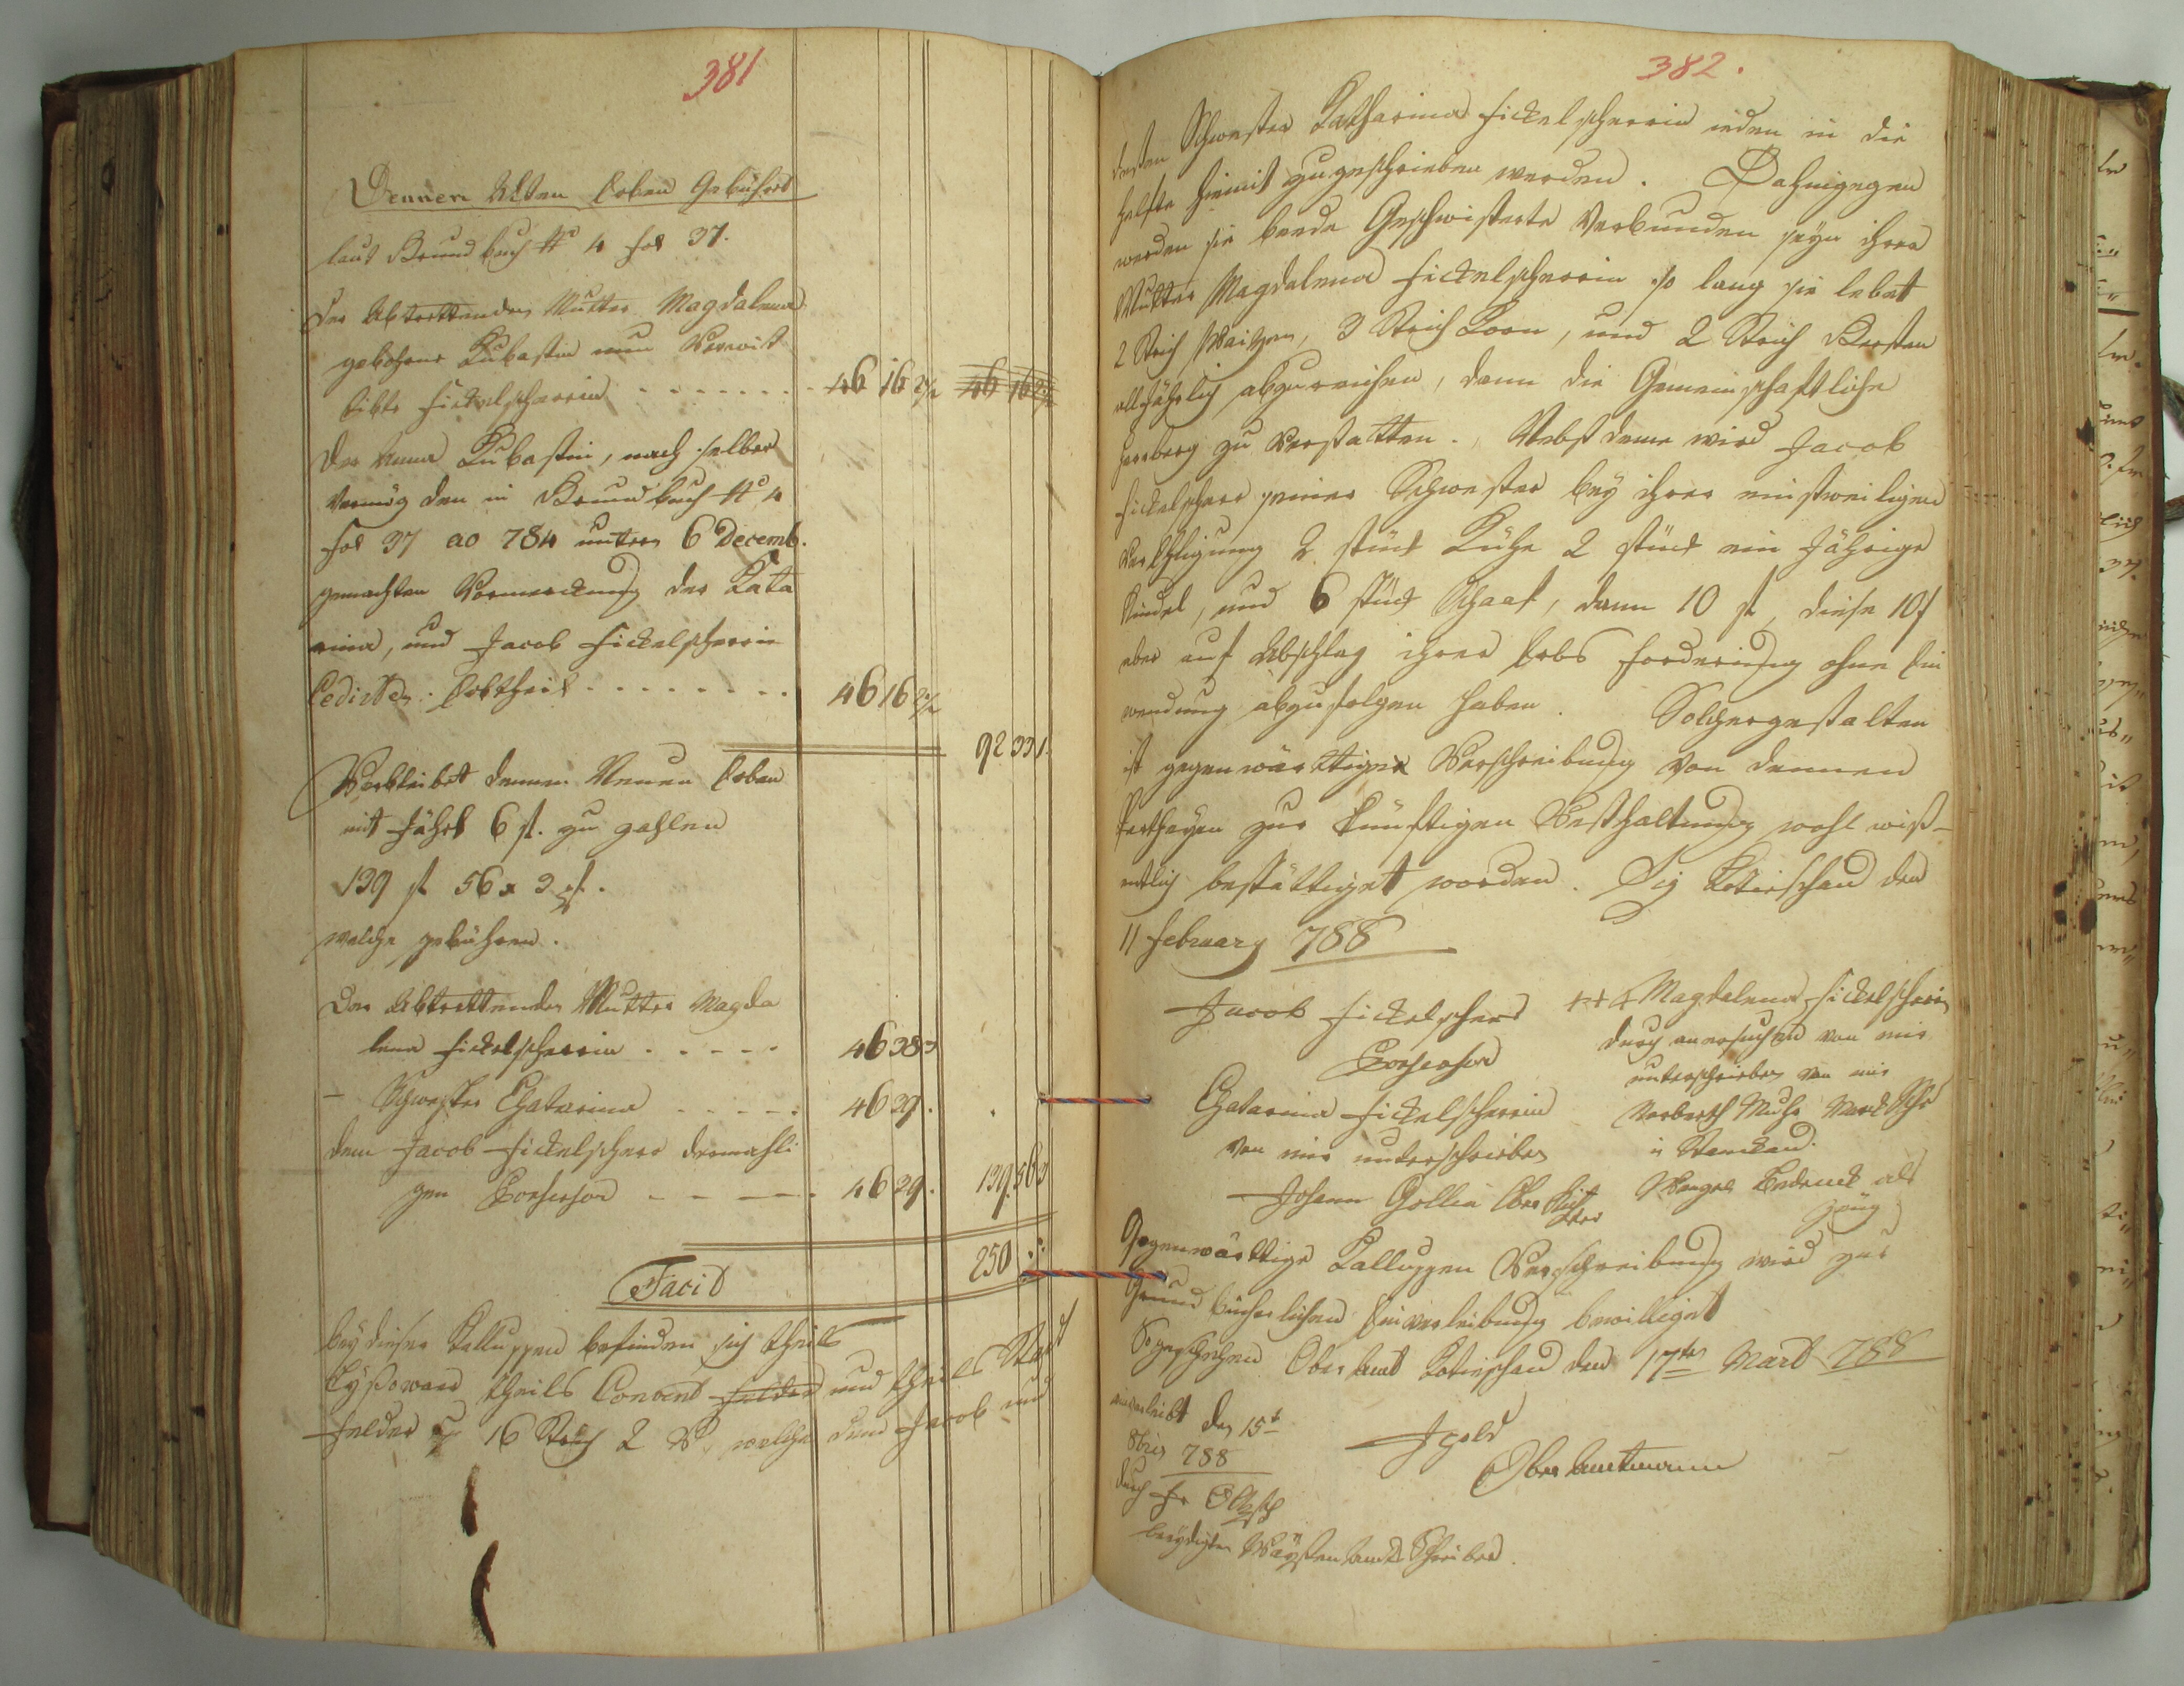 381
Dennen Alten Erben Gebühret
laut Grundbuch No 4 fol 37.
Der Abtrettenden Mutter Magdalena
gebohrne Kubastin nun Verwit
tibte Fickelscherrin - - - - - - - 46 16 2½ 46 16 2½
Der Anna Kubastin, nach selber
Vermög den in Grundbuch No 4
fol 37 ao 784 untern 6 Decemb.
gemachten Vormerckung der Kata
rina, und Jacob Fickelscherrin
Cedirten Erbtheil - - - - - - - - 46 16 2½
92 33 1.
Verbleibet dennen Neuen Erben
mit Jährl 6 fl. zu zahlen
139 fl 56 x 3 ₰.
welche gebühren.
Der Abtrettenden Mutter Magda
lena Fickelscherrin - - - - - 46 38 3
- Schwester Chatarina - - - - - 46 39.
dem Jacob Fickelscherr dermahli
gen Possessor - - - - - 46 39. 139. 56 3
Facit 250
bey dieser Kalluppen befinden sich theils
theils Convent felder und theils Stadt
Felder pr 16 Strich 2 V. welche dem Jacob und
382.
dessen Schwester Katharina Fickelscherrin jeden in die
Helfte hiemit zugeschrieben werden. Dahingegen
werden sie beede Geschwisterte Verbunden seyn ihrer
Mutter Magdalena Fickelscherrin so lang sie lebet
2 Strich Waitzen, 3 Strich Korn, und 2 Strich Gersten
alljährlich abzureichen, dann die Gemeinschaftliche
Herberg zu Verstatten. Nebst deme wird Jacob
Fickelscherr seiner Schwester bey ihrer einstweiligen
Verehligung 2 stück Kühe 2 stück ein Jährige
Rindel, und 6 stück Schaaf, dann 10 fl, diese 10 f
aber auf Abschlag ihrer Erbs forderung ohne Ein
wendung abzufolgen haben. Solchergestalten
ist gegenwärttiger Verschreibung von dennen
Partheyen zur künftigen Vesthaltung wohl wiß-
entlich bestättiget worden. Sig Kotieschau den
11 February 788
Jacob Fickelscherr
Possessor
+++ Magdalena Fickelscherin
durch an ersuchen von mir
unterschrieben von mir
Norberth Muhr
in Stanckau.
Chatarina Fickelscherrin
von mir unterschrieben
Johann Gollin Ober Richter
als
Zeug
Gegenwärttige Kalluppen Verschreibung wird zur
Grund bücherlichen Einverleibung bewilliget
So geschehen Ober Amt Kotieschau den 17ten Mart 788
Ober Amtmann
einverleibt den 15t
8bris 788
durch
beeydigten Waysen Amts Schreiber.